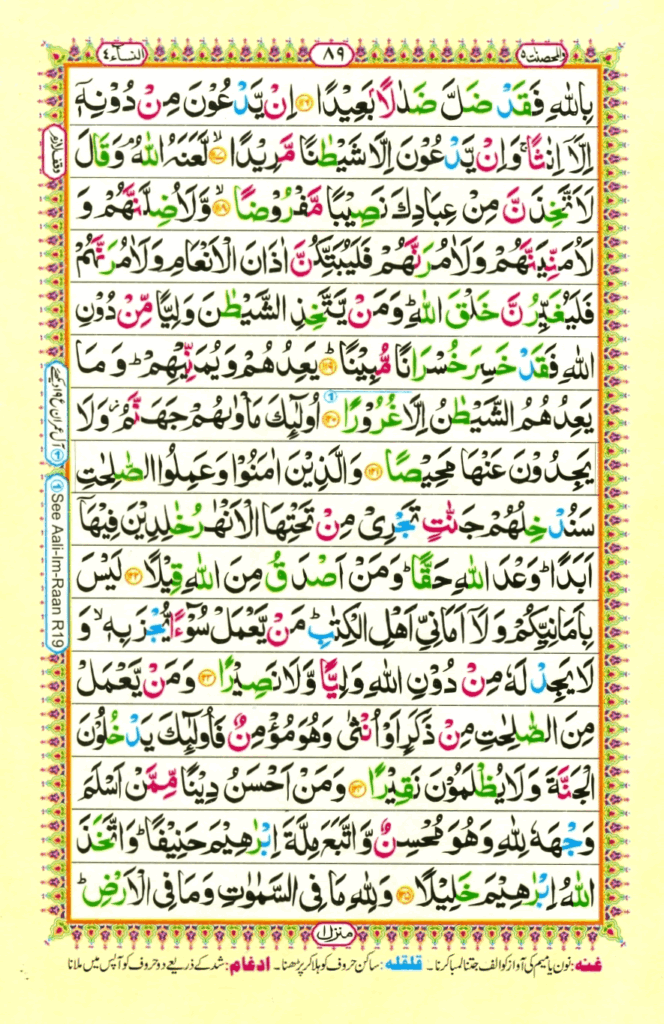 والمحصنت ٥
٨٩
النسآء ٤
بِاللّٰهِ فَقَدْ ضَلَّ ضَلٰلًا بَعِيْدًا ﴿١١٦﴾ اِنْ يَّدْعُوْنَ مِنْ دُوْنِهٖٓ
اِلَّآ اِنٰثًا ۚ وَاِنْ يَّدْعُوْنَ اِلَّا شَيْطٰنًا مَّرِيْدًا ﴿١١٧﴾ۙ لَّعَنَهُ اللّٰهُ ۘ وَقَالَ
لَاَتَّخِذَنَّ مِنْ عِبَادِكَ نَصِيْبًا مَّفْرُوْضًا ﴿١١٨﴾ۙ وَّلَاُضِلَّنَّهُمْ وَ
لَاُمَنِّيَنَّهُمْ وَلَاٰمُرَنَّهُمْ فَلَيُبَتِّكُنَّ اٰذَانَ الْاَنْعَامِ وَلَاٰمُرَنَّهُمْ
فَلَيُغَيِّرُنَّ خَلْقَ اللّٰهِ ؕ وَمَنْ يَّتَّخِذِ الشَّيْطٰنَ وَلِيًّا مِّنْ دُوْنِ
اللّٰهِ فَقَدْ خَسِرَ خُسْرَانًا مُّبِيْنًا ﴿١١٩﴾ؕ يَعِدُهُمْ وَيُمَنِّيْهِمْ ؕ وَمَا
يَعِدُهُمُ الشَّيْطٰنُ اِلَّا غُرُوْرًا ﴿١٢٠﴾ اُولٰٓئِكَ مَاْوٰىهُمْ جَهَنَّمُ ۫ وَلَا
يَجِدُوْنَ عَنْهَا مَحِيْصًا ﴿١٢١﴾ وَالَّذِيْنَ اٰمَنُوْا وَعَمِلُوا الصّٰلِحٰتِ
سَنُدْخِلُهُمْ جَنّٰتٍ تَجْرِيْ مِنْ تَحْتِهَا الْاَنْهٰرُ خٰلِدِيْنَ فِيْهَآ
اَبَدًا ؕ وَعْدَ اللّٰهِ حَقًّا ؕ وَمَنْ اَصْدَقُ مِنَ اللّٰهِ قِيْلًا ﴿١٢٢﴾ لَيْسَ
بِاَمَانِيِّكُمْ وَلَآ اَمَانِيِّ اَهْلِ الْكِتٰبِ ؕ مَنْ يَّعْمَلْ سُوْٓءًا يُّجْزَ بِهٖ ۙ وَ
لَا يَجِدْ لَهٗ مِنْ دُوْنِ اللّٰهِ وَلِيًّا وَّلَا نَصِيْرًا ﴿١٢٣﴾ وَمَنْ يَّعْمَلْ
مِنَ الصّٰلِحٰتِ مِنْ ذَكَرٍ اَوْ اُنْثٰى وَهُوَ مُؤْمِنٌ فَاُولٰٓئِكَ يَدْخُلُوْنَ
الْجَنَّةَ وَلَا يُظْلَمُوْنَ نَقِيْرًا ﴿١٢٤﴾ وَمَنْ اَحْسَنُ دِيْنًا مِّمَّنْ اَسْلَمَ
وَجْهَهٗ لِلّٰهِ وَهُوَ مُحْسِنٌ وَّاتَّبَعَ مِلَّةَ اِبْرٰهِيْمَ حَنِيْفًا ؕ وَاتَّخَذَ
اللّٰهُ اِبْرٰهِيْمَ خَلِيْلًا ﴿١٢٥﴾ وَلِلّٰهِ مَا فِي السَّمٰوٰتِ وَمَا فِي الْاَرْضِ ؕ
وقف لازم
① آل عمران ع ١٩ دیکھئے
① See Aali-Im-Raan R19
منزل ١
غنه: نون یا میم کی آواز کو الف جتنا لمبا کرنا۔ قلقله: ساکن حروف کو ہلا کر پڑھنا۔ ادغام: شد کے ذریعے دو حروف کو آپس میں ملانا